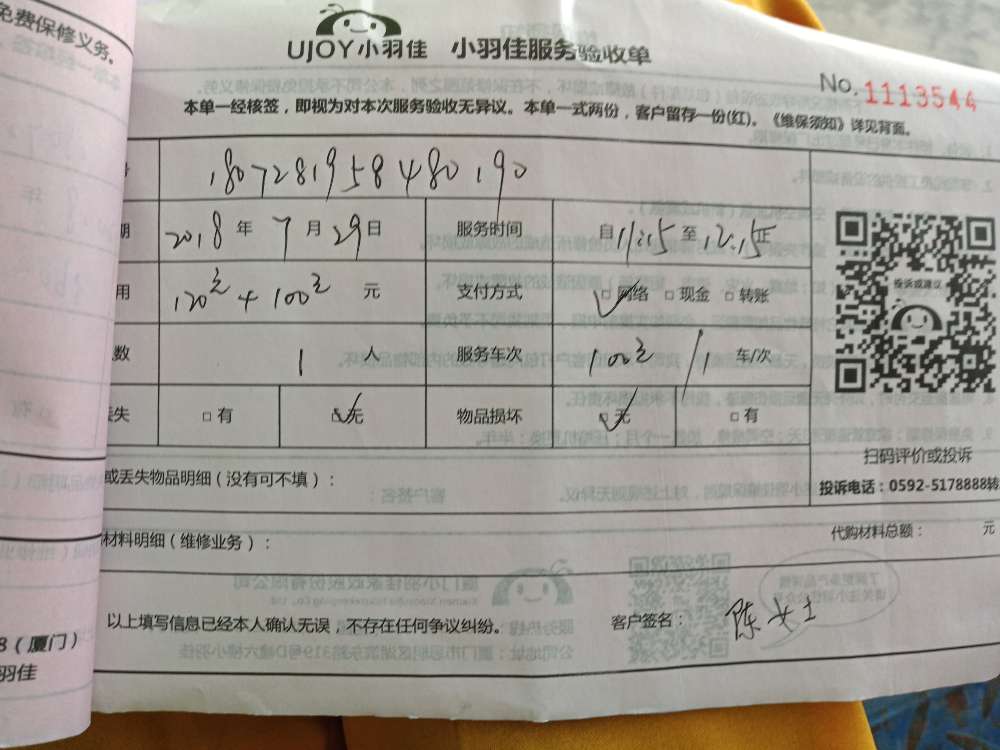 免费保修义务。
UJOY小羽佳 小羽佳服务验收单
No.1113544
本单一经核签，即视为对本次服务验收无异议。本单一式两份，客户留存一份(红)。《维保须知》详见背面。
1807281958480190
期 2018年7月29日 服务时间 自11:15至12:15正
用 120元+100元 元 支付方式 网络 现金 转账
数 1人 服务车次 100元/1车/次
丢失 有 无 物品损坏 无 有
投诉或建议
扫码评价或投诉
投诉电话：0592-5178888转
或丢失物品明细（没有可不填）：
材料明细（维修业务）：
代购材料总额： 元
以上填写信息已经本人确认无误，不存在任何争议纠纷。
客户签名：陈女士
8（厦门）
羽佳